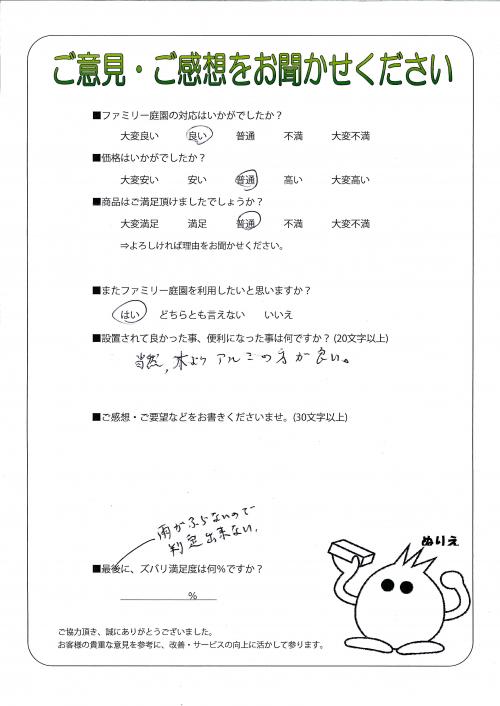 ご意見・ご感想をお聞かせください
■ファミリー庭園の対応はいかがでしたか？
大変良い 良い 普通 不満 大変不満
■価格はいかがでしたか？
大変安い 安い 普通 高い 大変高い
■商品はご満足頂けましたでしょうか？
大変満足 満足 普通 不満 大変不満
⇒よろしければ理由をお聞かせください。
■またファミリー庭園を利用したいと思いますか？
はい どちらとも言えない いいえ
■設置されて良かった事、便利になった事は何ですか？(20文字以上)
当然,木よりアルミの方が良い。
■ご感想・ご要望などをお書きくださいませ。(30文字以上)
雨がふらないので
判定出来ない.
■最後に、ズバリ満足度は何%ですか？
%
ぬりえ
ご協力頂き、誠にありがとうございました。
お客様の貴重な意見を参考に、改善・サービスの向上に活かして参ります。